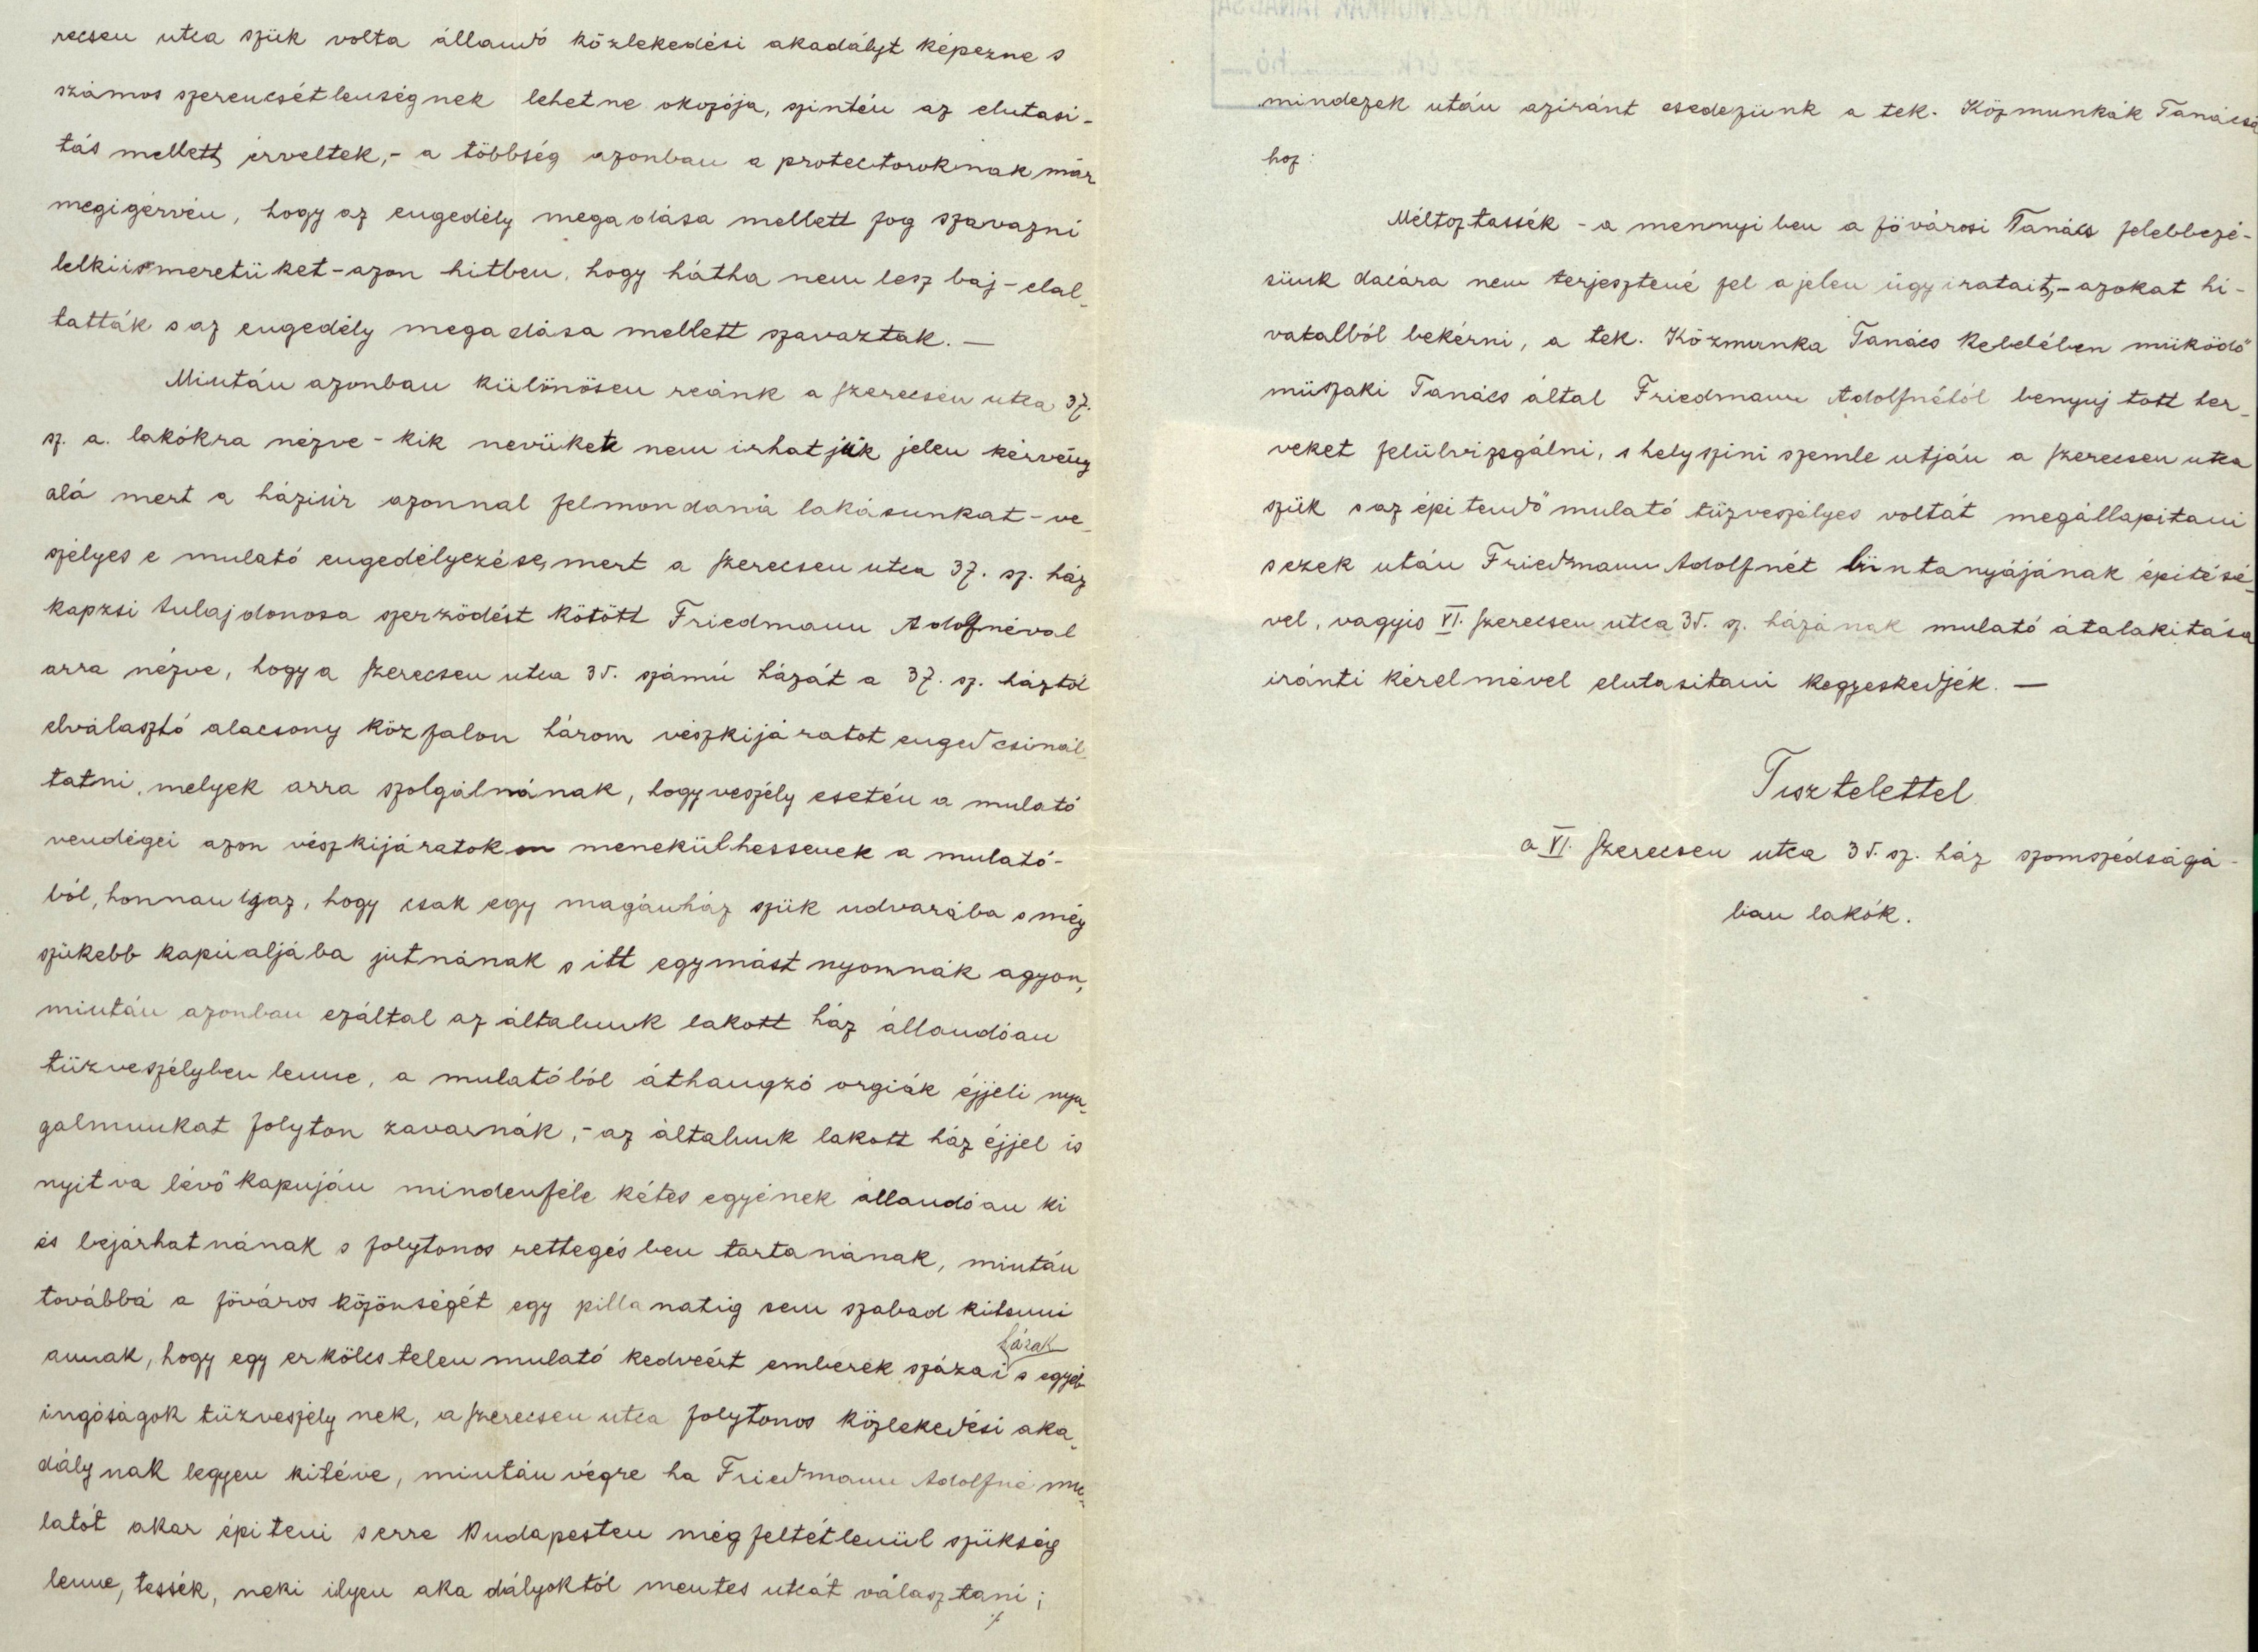 recsen utca szük volta állandó közlekedési akadályt képezne s
számos szerencsétlenségnek lehetne okozója, szintén az elutasi-
tás mellett érveltek,- a többség azonban a protectoroknak már
megigérvén, hogy az engedély megadása mellett fog szavazni
lelkiismeretüket - azon hitben, hogy hátha nem lesz baj - elal-
tatták s az engedély megadása mellett szavaztak. —
Miután azonban különösen reánk a Szerecsen utca 37.
sz. a. lakókra nézve - kik nevüket nem irhatjuk jelen kérvény
alá mert a háziúr azonnal felmondaná lakásunkat - ve-
szélyes e mulató engedélyezése, mert a Szerecsen utca 37. sz. ház
kapzsi tulajdonosa szerződést kötött Friedmann Adolfnéval
arra nézve, hogy a Szerecsen utca 35. számú házát a 37. sz. háztól
elválasztó alacsony közfalon három vészkijáratot enged csinál-
tatni, melyek arra szolgálnának, hogy veszély esetén a mulató
vendégei azon vészkijáratokon menekülhessenek a mulató-
ból, honnan igaz, hogy csak egy magánház szük udvarába s még
szükebb kapúaljába jutnának s itt egymást nyomnák agyon,
miután azonban ezáltal az általunk lakott ház állandóan
tüzveszélyben lenne, a mulatóból áthangzó orgiák éjjeli nyu-
galmunkat folyton zavarnák,- az általunk lakott ház éjjel is
nyitva lévő kapuján mindenféle kétes egyének állandóan ki
és bejárhatnának s folytonos rettegésben tartanának, miután
továbbá a főváros közönségét egy pillanatig sem szabad kitenni
annak, hogy egy erkölcstelen mulató kedveért emberek százai házak s egyéb
ingóságok tüzveszélynek, a Szerecsen utca folytonos közlekedési aka-
dálynak legyen kitéve, miután végre ha Friedmann Adolfné mu-
latót akar épiteni s erre Budapesten még feltétlenül szükség
lenne, tessék, neki ilyen akadályoktól mentes utcát választani;
./.
mindezek után aziránt esedezünk a tek. Közmunkák Tanácsá
hoz:
Méltoztassék - a mennyiben a fővárosi Tanács felebbezé-
sünk dacára nem terjesztené fel a jelen ügy iratait,- azokat hi-
vatalból bekérni, a tek. Közmunka Tanács kebelében müködő
müszaki Tanács által Friedmann Adolfnétól benyujtott ter-
veket felülvizsgálni, s helyszini szemle utján a Szerecsen utca
szük s az épitendő mulató tüzveszélyes voltát megállapitani
s ezek után Friedmann Adolfnét büntanyájának épitésé-
vel, vagyis VI. Szerecsen utca 35. sz. házának mulató átalakitása
iránti kérelmével elutasitani kegyeskedjék. —
Tisztelettel
a VI. Szerecsen utca 35. sz. ház szomszédságá-
ban lakók.